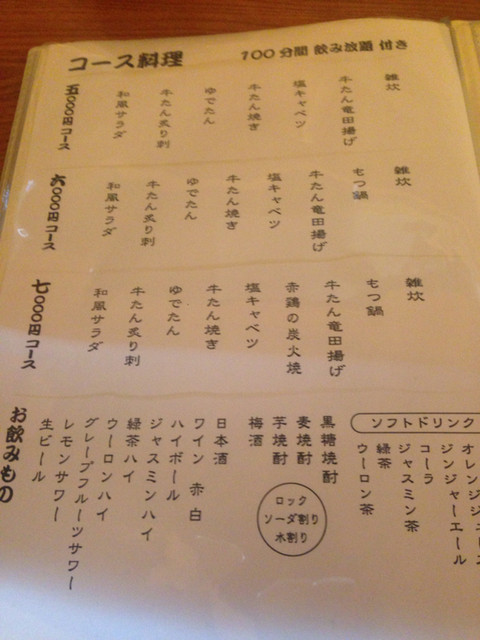 コース料理
100分間 飲み放題 付き
五〇〇〇円コース
和風サラダ
牛たん炙り刺
ゆでたん
牛たん焼き
塩キャベツ
牛たん竜田揚げ
雑炊
六〇〇〇円コース
和風サラダ
牛たん炙り刺
ゆでたん
牛たん焼き
塩キャベツ
牛たん竜田揚げ
もつ鍋
雑炊
七〇〇〇円コース
和風サラダ
牛たん炙り刺
ゆでたん
牛たん焼き
塩キャベツ
赤鶏の炭火焼
牛たん竜田揚げ
もつ鍋
雑炊
お飲みもの
生ビール
レモンサワー
グレープフルーツサワー
ウーロンハイ
緑茶ハイ
ジャスミンハイ
ハイボール
ワイン 赤 白
日本酒
梅酒
芋焼酎
麦焼酎
黒糖焼酎
ロック
ソーダ割り
水割り
ソフトドリンク
ウーロン茶
緑茶
ジャスミン茶
コーラ
ジンジャーエール